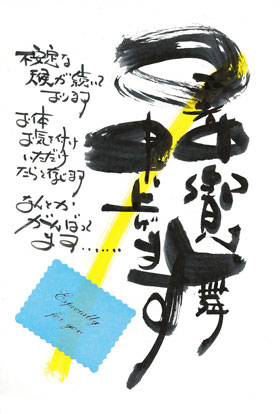 暑中お見舞
申上げます
不安定な
天候が続いて
おります
お体
お気を付け
いただけ
たらと存じます
なんとか
がんばって
ます……
Especially
for you